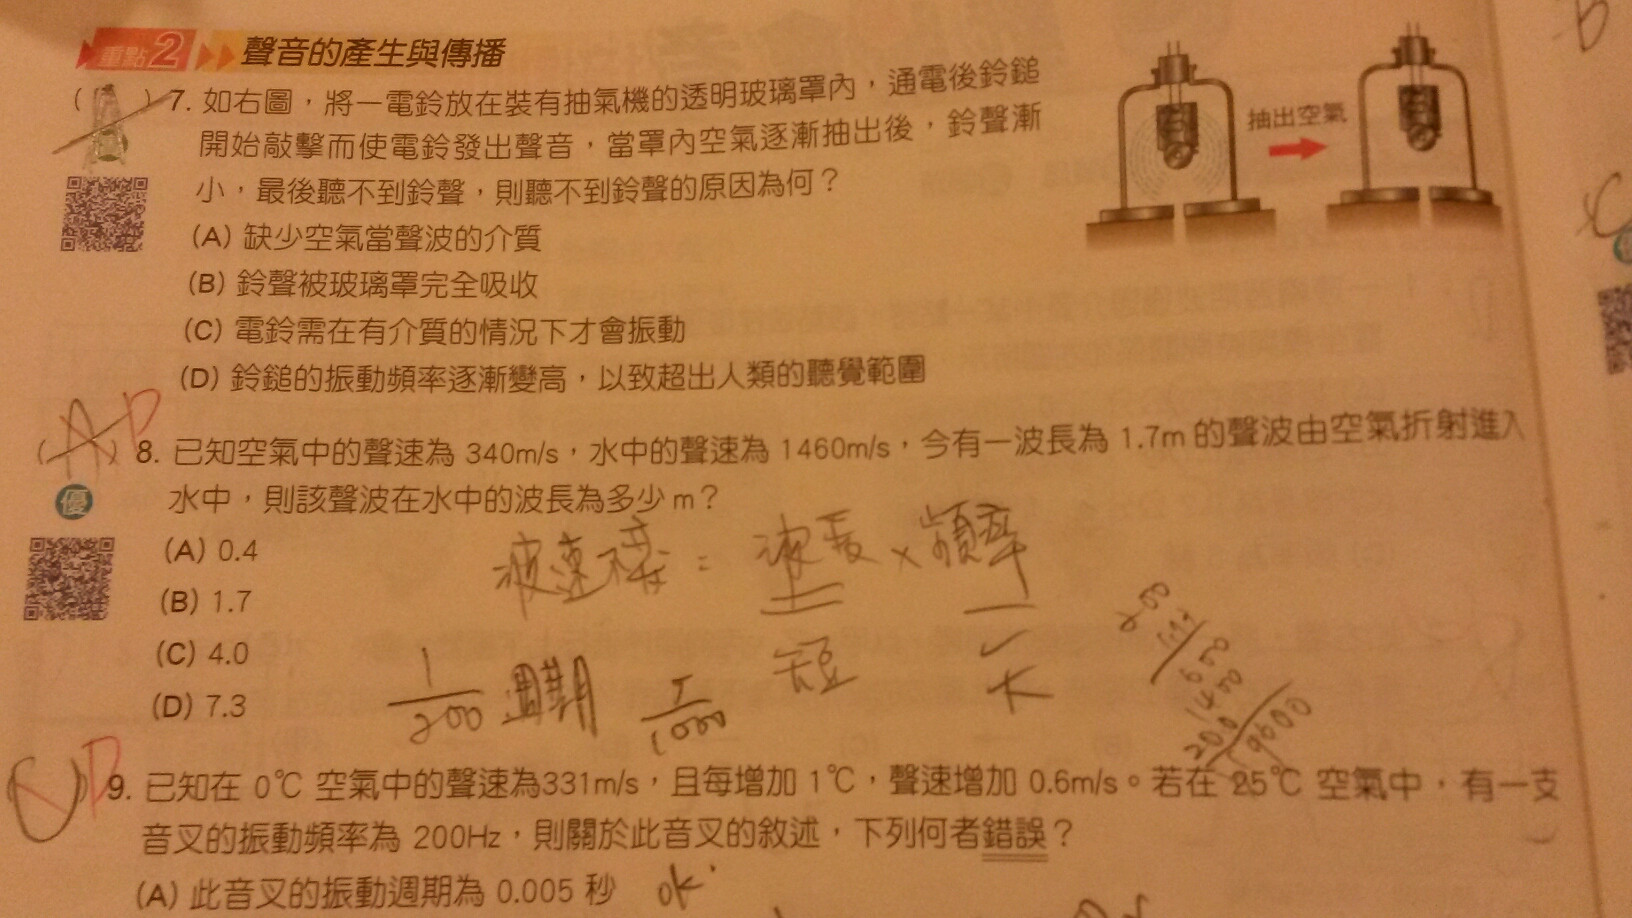 重點2 聲音的產生與傳播
( ) 7. 如右圖，將一電鈴放在裝有抽氣機的透明玻璃罩內，通電後鈴鎚
開始敲擊而使電鈴發出聲音，當罩內空氣逐漸抽出後，鈴聲漸
小，最後聽不到鈴聲，則聽不到鈴聲的原因為何？
抽出空氣
(A) 缺少空氣當聲波的介質
(B) 鈴聲被玻璃罩完全吸收
(C) 電鈴需在有介質的情況下才會振動
(D) 鈴鎚的振動頻率逐漸變高，以致超出人類的聽覺範圍
(A) D 8. 已知空氣中的聲速為 340m/s，水中的聲速為 1460m/s，今有一波長為 1.7m 的聲波由空氣折射進入
優 水中，則該聲波在水中的波長為多少 m？
(A) 0.4
(B) 1.7
(C) 4.0
(D) 7.3
波速不變 = 波長 × 頻率
短 大
1/200 週期 1/1000
D 9. 已知在 0℃ 空氣中的聲速為331m/s，且每增加 1℃，聲速增加 0.6m/s。若在 25℃ 空氣中，有一支
音叉的振動頻率為 200Hz，則關於此音叉的敘述，下列何者錯誤？
(A) 此音叉的振動週期為 0.005 秒 ok
B
C